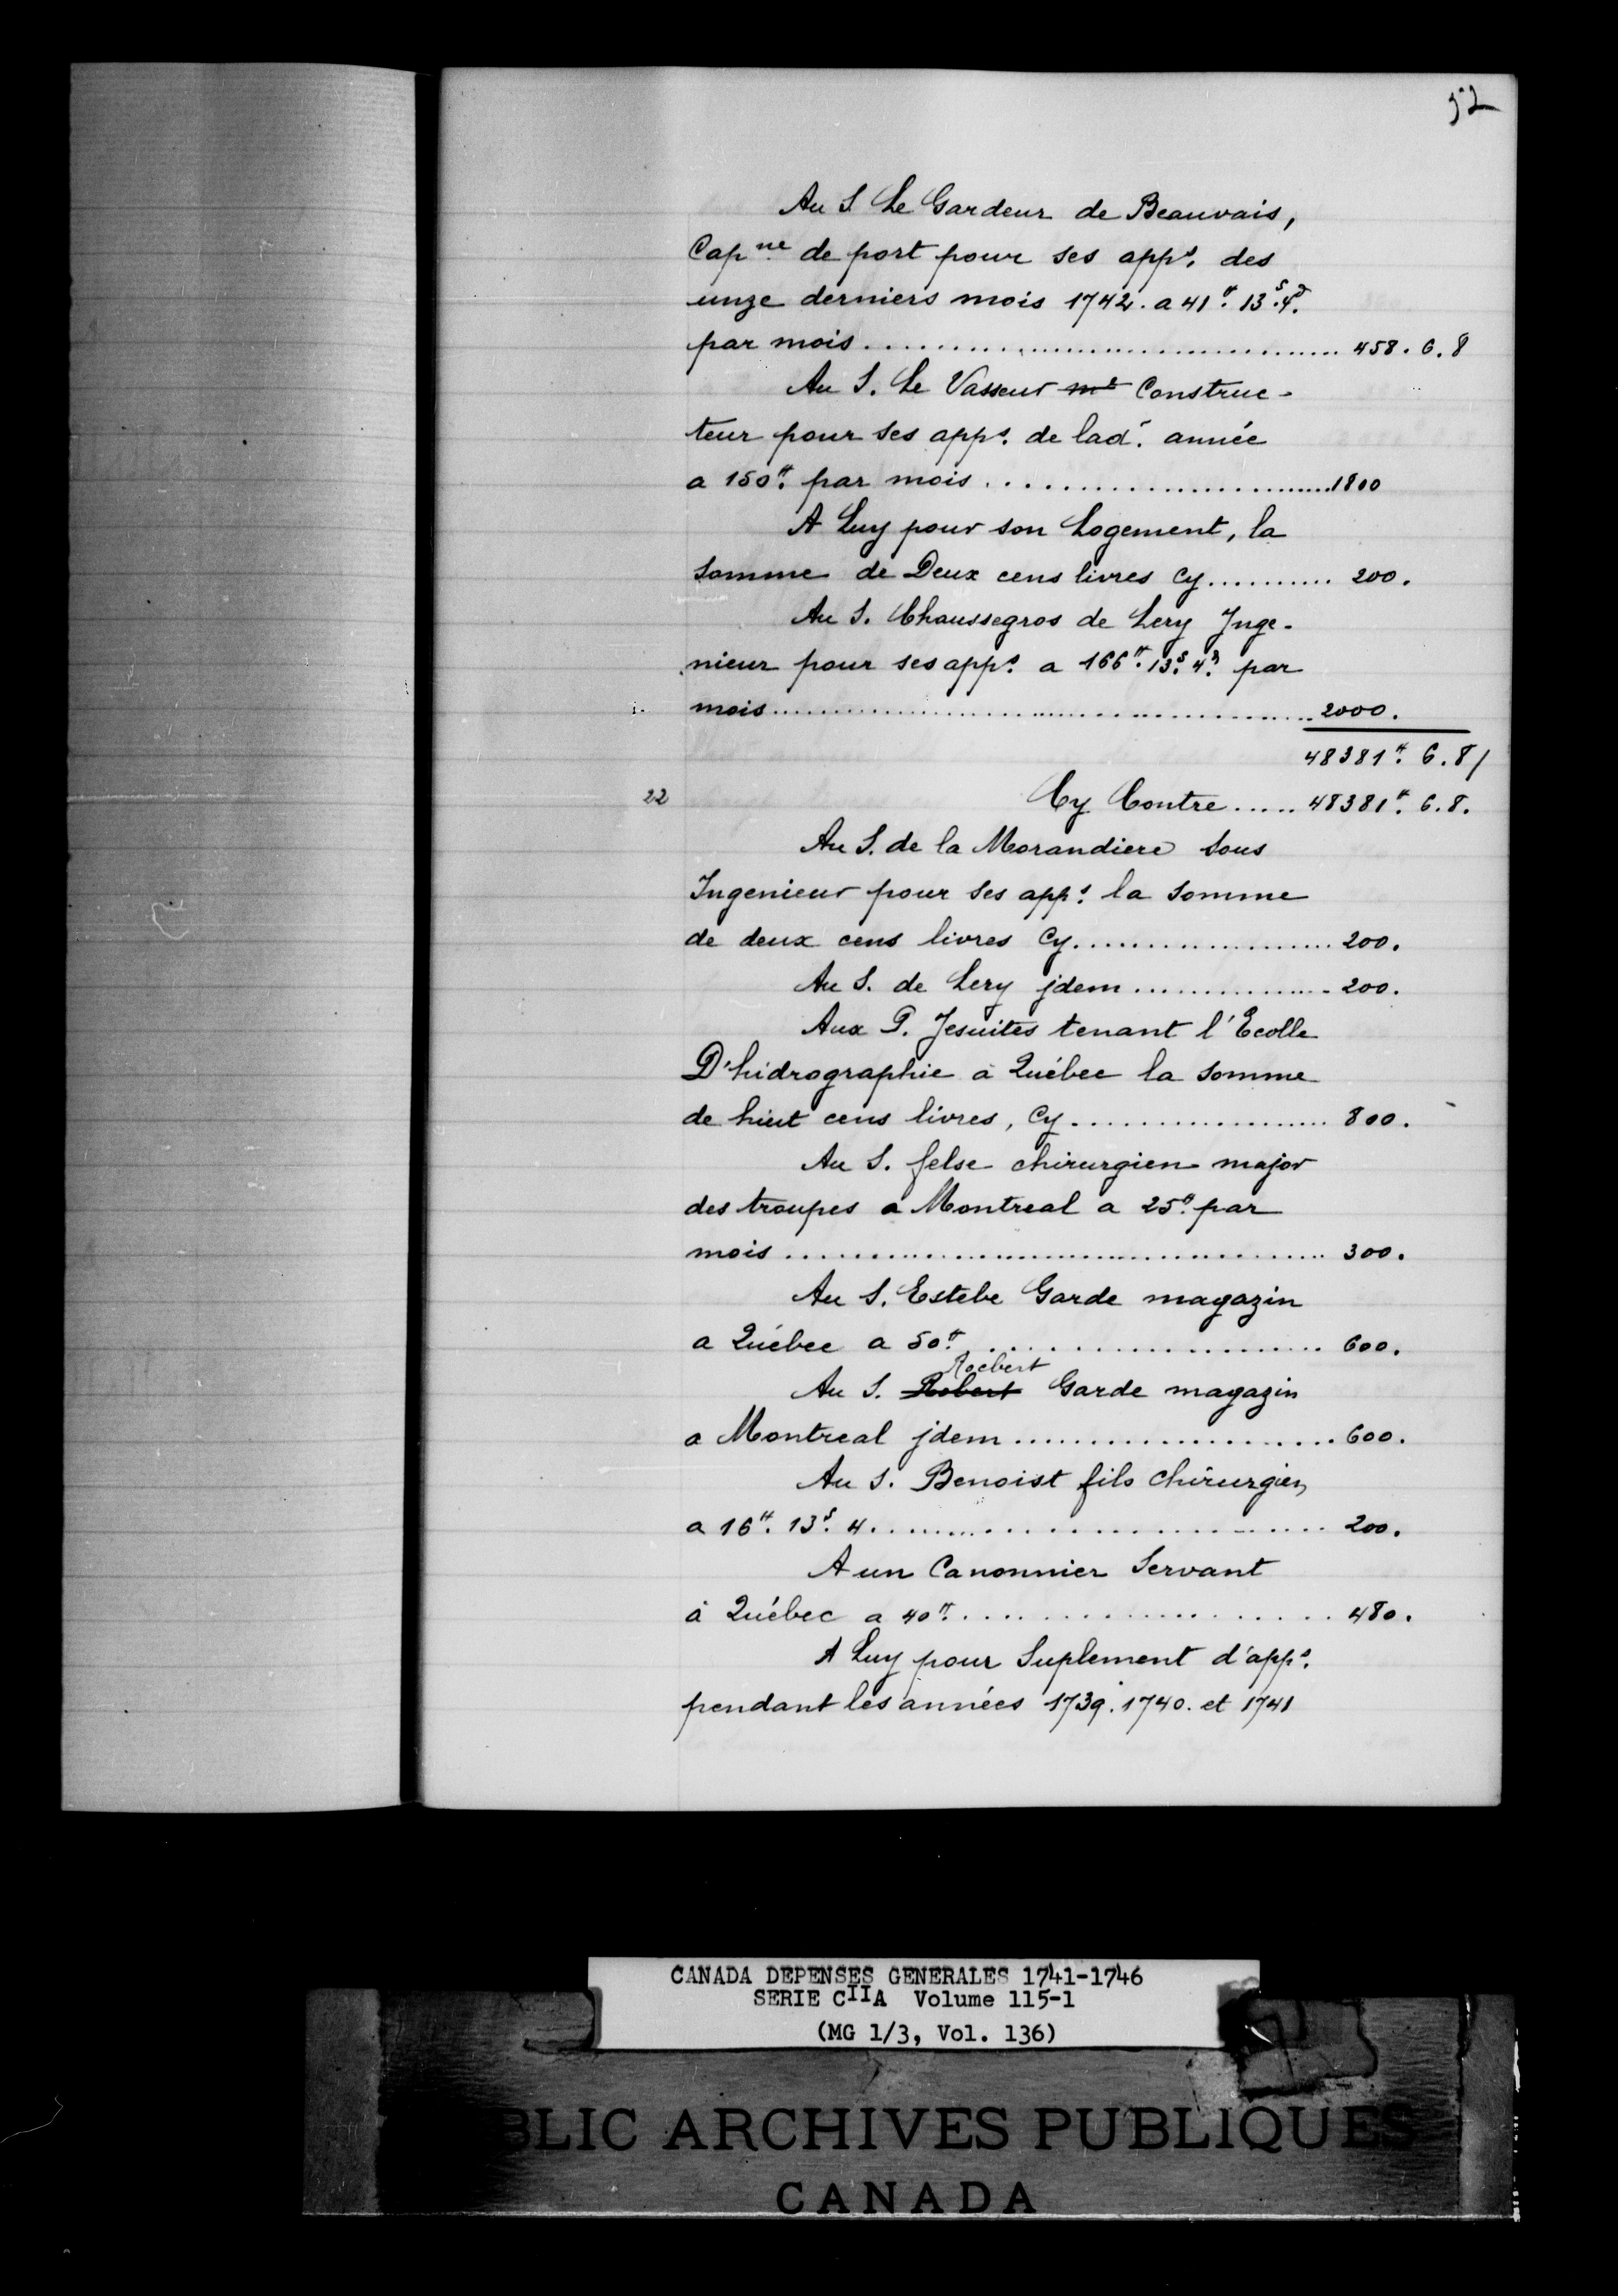 52
Au S Le Gardeur de Beauvais,
Capne de port pour ses apps. des
unze derniers mois 1742. a 41tt. 13s. 4d.
par mois .......... 458. 6. 8
Au S. Le Vasseur mt Construc-
teur pour ses apps. de lad. année
a 150tt. par mois .......... 1800
A Luy pour son Logement, la
somme de Deux cens livres Cy .......... 200.
Au S. Chaussegros de Lery Inge-
nieur pour ses apps. a 166tt. 13s. 4d. par
mois .......... 2000.
48381tt. 6. 8/
22 Cy Contre ..... 48381tt. 6. 8.
Au S. de la Morandiere Sous
Ingenieur pour ses apps. la somme
de deux cens livres Cy .......... 200.
Au S. de Lery jdem .......... 200.
Aux P. Jesuites tenant l'Ecolle
D'hidrographie à Québec la somme
de huit cens livres, Cy .......... 800.
Au S. felse chirurgien major
des troupes a Montreal a 25tt. par
mois .......... 300.
Au S. Estebe Garde magazin
a Québec a 50tt .......... 600.
Rocbert
Au S. Robert Garde magazin
a Montreal jdem .......... 600.
Au S. Benoist fils Chirurgien
a 16tt. 13s. 4 .......... 200.
A un Canonnier Servant
à Québec a 40tt .......... 480.
A Luy pour Suplement d'apps.
pendant les années 1739. 1740. et 1741
CANADA DEPENSES GENERALES 1741-1746
SERIE CIIA Volume 115-1
(MG 1/3, Vol. 136)
BLIC ARCHIVES PUBLIQUES
CANADA